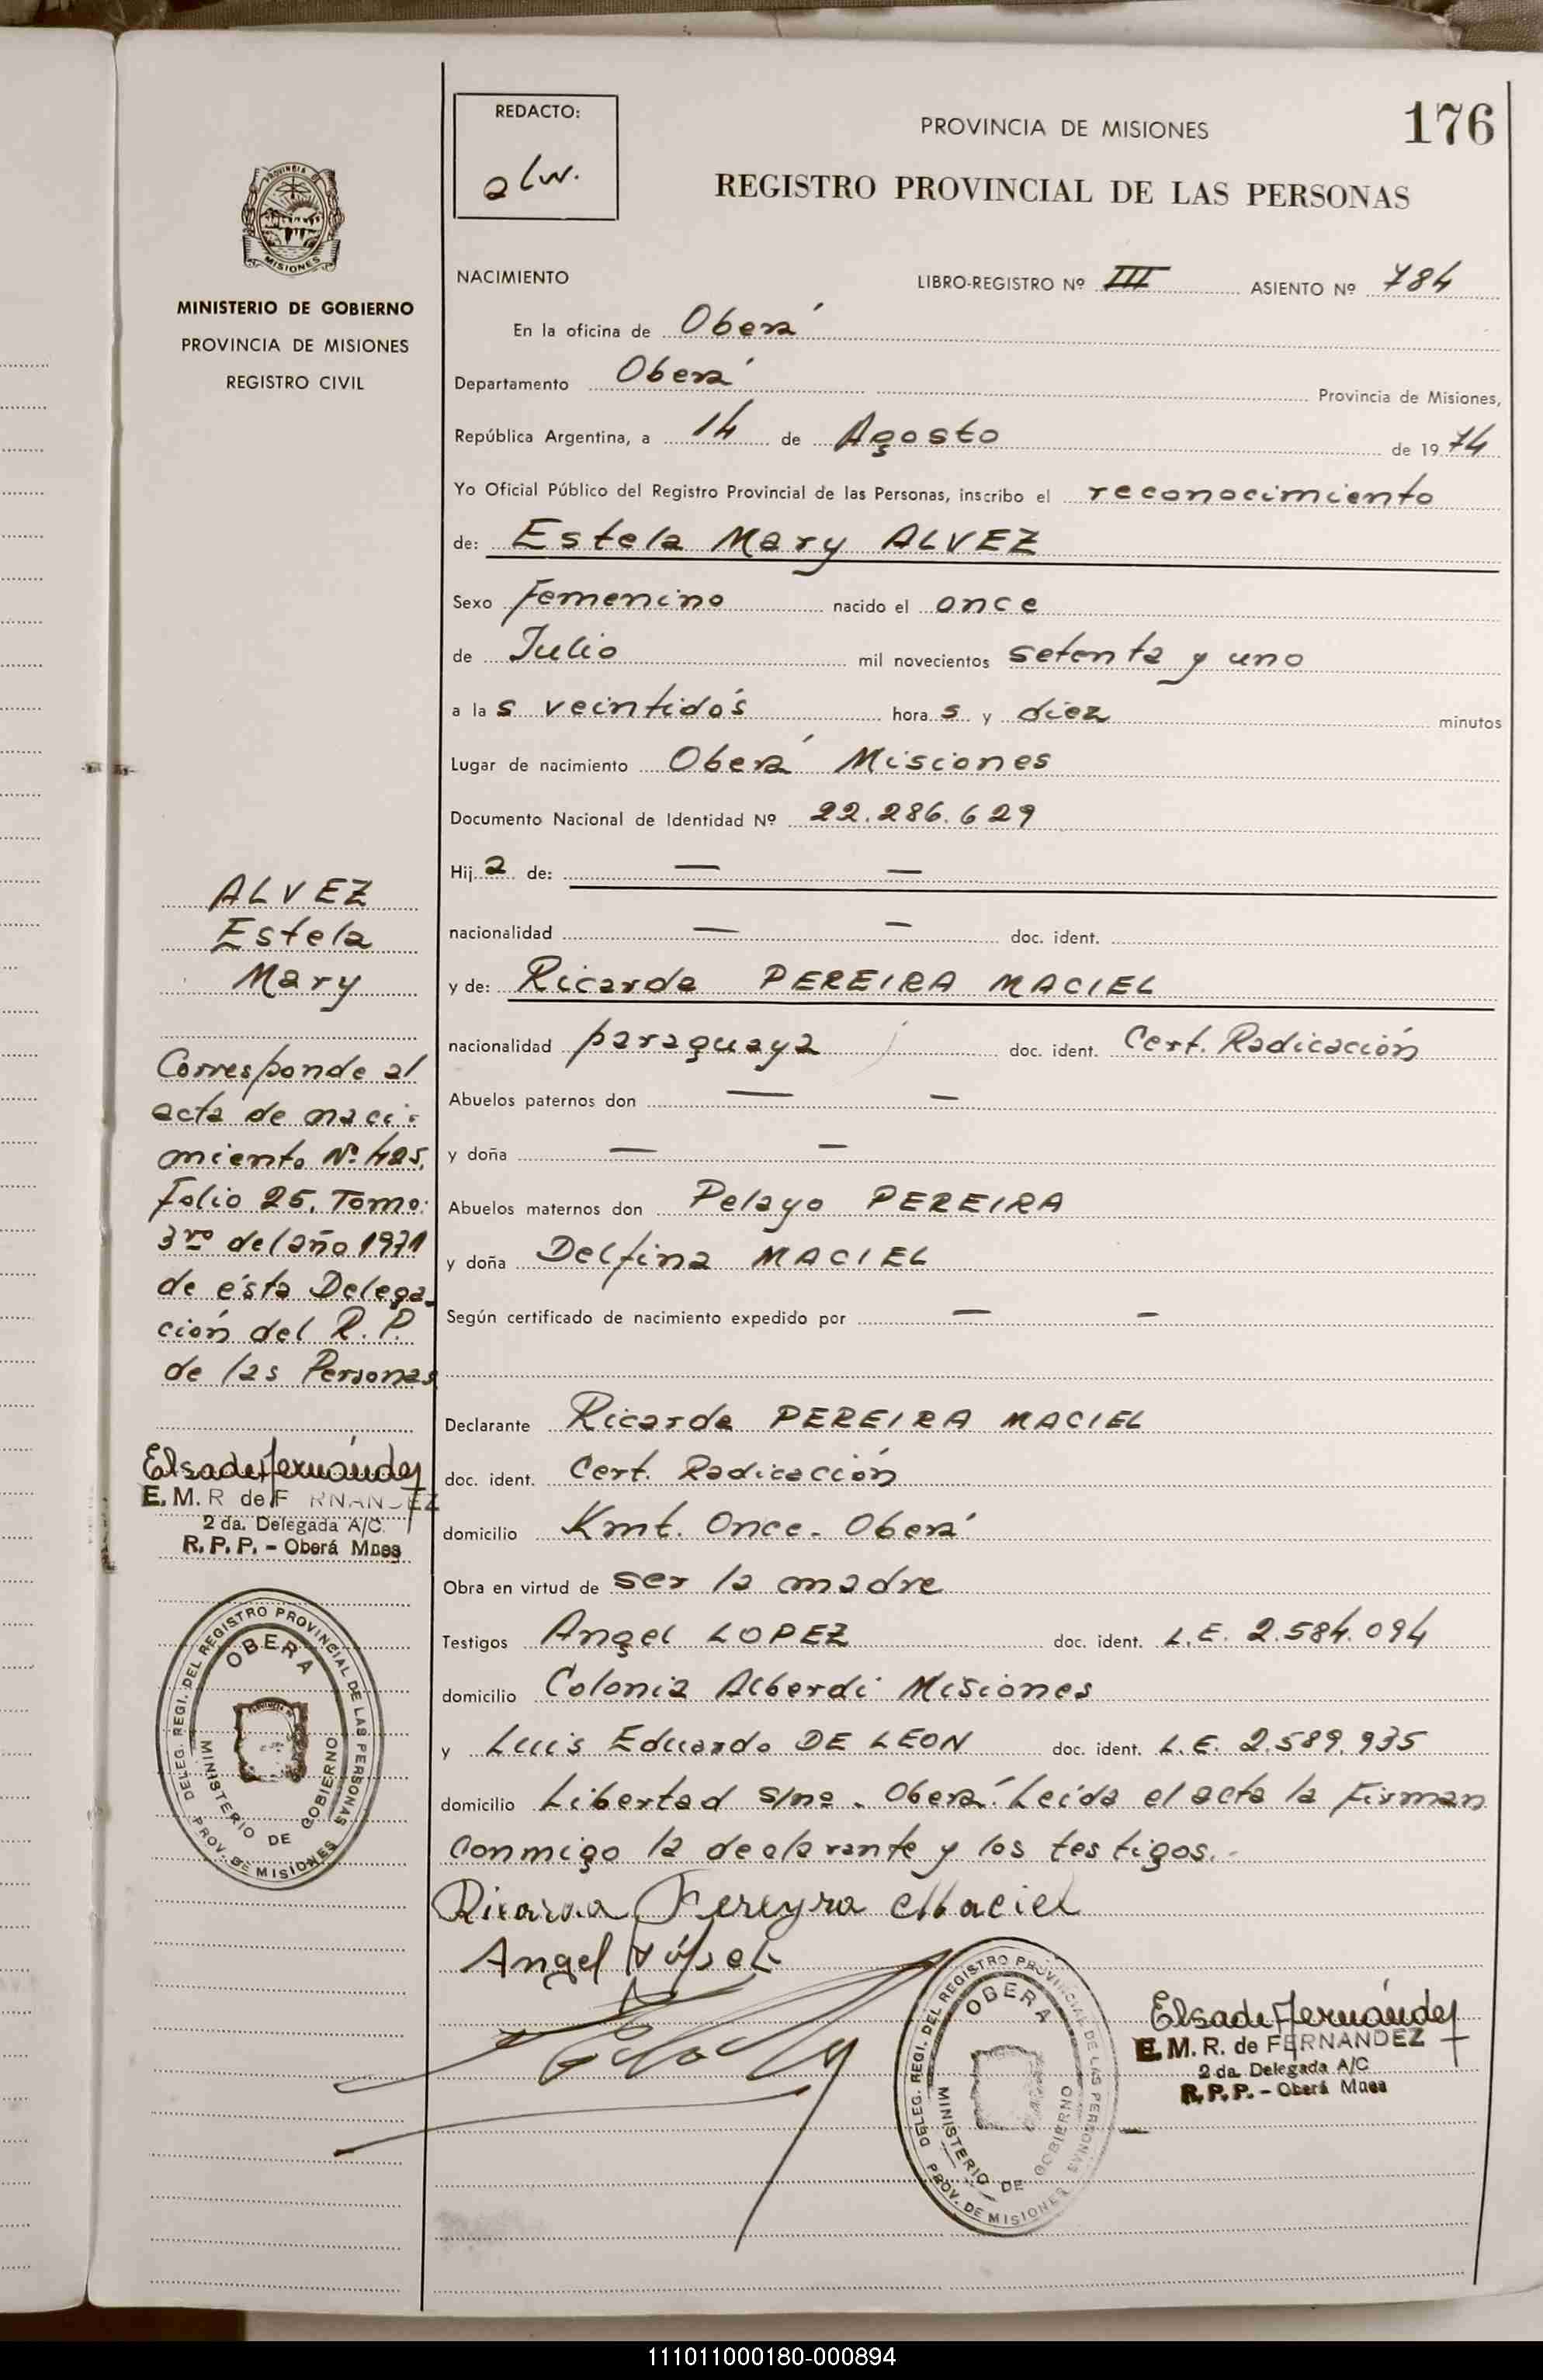 REDACTO:
alw.
PROVINCIA DE MISIONES
176
REGISTRO PROVINCIAL DE LAS PERSONAS
PROVINCIA
MISIONES
MINISTERIO DE GOBIERNO
PROVINCIA DE MISIONES
REGISTRO CIVIL
NACIMIENTO LIBRO-REGISTRO Nº III ASIENTO Nº 784
En la oficina de Oberá
Departamento Oberá Provincia de Misiones,
República Argentina, a 14 de Agosto de 1974
Yo Oficial Público del Registro Provincial de las Personas, inscribo el reconocimiento
de: Estela Mary ALVEZ
Sexo Femenino nacido el once
de Julio mil novecientos setenta y uno
a las veintidós horas y diez minutos
Lugar de nacimiento Oberá Misiones
Documento Nacional de Identidad Nº 22.286.629
Hija de: — —
nacionalidad — — doc. ident.
y de: Ricarda PEREIRA MACIEL
nacionalidad paraguaya doc. ident. Cert. Radicación
Abuelos paternos don — —
y doña — —
Abuelos maternos don Pelayo PEREIRA
y doña Delfina MACIEL
Según certificado de nacimiento expedido por — —
Declarante Ricarda PEREIRA MACIEL
doc. ident. Cert. Radicación
domicilio Kmt. Once. Oberá
Obra en virtud de ser la madre
Testigos Angel LOPEZ doc. ident. L.E. 2.584.094
domicilio Colonia Alberdi Misiones
y Luis Eduardo DE LEON doc. ident. L.E. 2.589.935
domicilio Libertad s/nº. Oberá. Leida el acta la Firman
conmigo la declarante y los testigos.-
Ricarda Pereyra Maciel
Angel López
ALVEZ
Estela
Mary
Corresponde al
acta de naci-
miento Nº 425,
Folio 25, Tomo:
3ro del año 1971
de ésta Delega-
ción del R.P.
de las Personas
Elsa de Fernández
E. M. R de F RNANDEZ
2 da. Delegada A/C
R. P. P. - Oberá Mnes
DELEG. REGI. DEL REGISTRO PROVINCIAL DE LAS PERSONAS
OBERA
MINISTERIO DE GOBIERNO
PROV. DE MISIONES
DELEG. REGI. DEL REGISTRO PROVINCIAL DE LAS PERSONAS
OBERA
MINISTERIO DE GOBIERNO
PROV. DE MISIONES
Elsa de Fernández
E. M. R. de FERNANDEZ
2 da. Delegada A/C
R. P. P. - Oberá Mnes
111011000180-000894